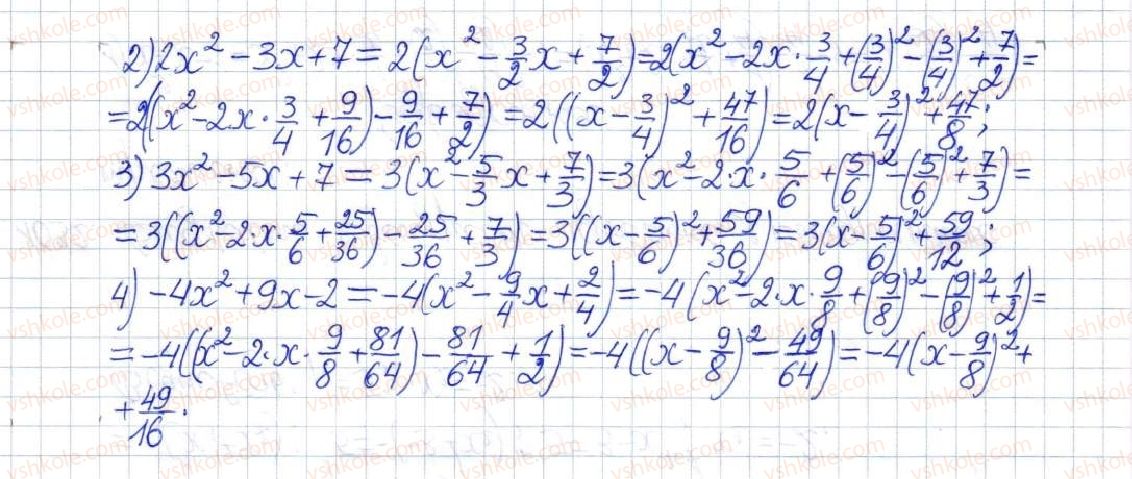 2) 2x² − 3x + 7 = 2(x² − 3/2 x + 7/2) = 2(x² − 2x · 3/4 + (3/4)² − (3/4)² + 7/2) =
= 2((x² − 2x · 3/4 + 9/16) − 9/16 + 7/2) = 2((x − 3/4)² + 47/16) = 2(x − 3/4)² + 47/8;
3) 3x² − 5x + 7 = 3(x² − 5/3 x + 7/3) = 3(x² − 2 · x · 5/6 + (5/6)² − (5/6)² + 7/3) =
= 3((x² − 2 · x · 5/6 + 25/36) − 25/36 + 7/3) = 3((x − 5/6)² + 59/36) = 3(x − 5/6)² + 59/12;
4) −4x² + 9x − 2 = −4(x² − 9/4 x + 2/4) = −4(x² − 2 · x · 9/8 + (9/8)² − (9/8)² + 1/2) =
= −4((x² − 2 · x · 9/8 + 81/64) − 81/64 + 1/2) = −4((x − 9/8)² − 49/64) = −4(x − 9/8)² +
+ 49/16.